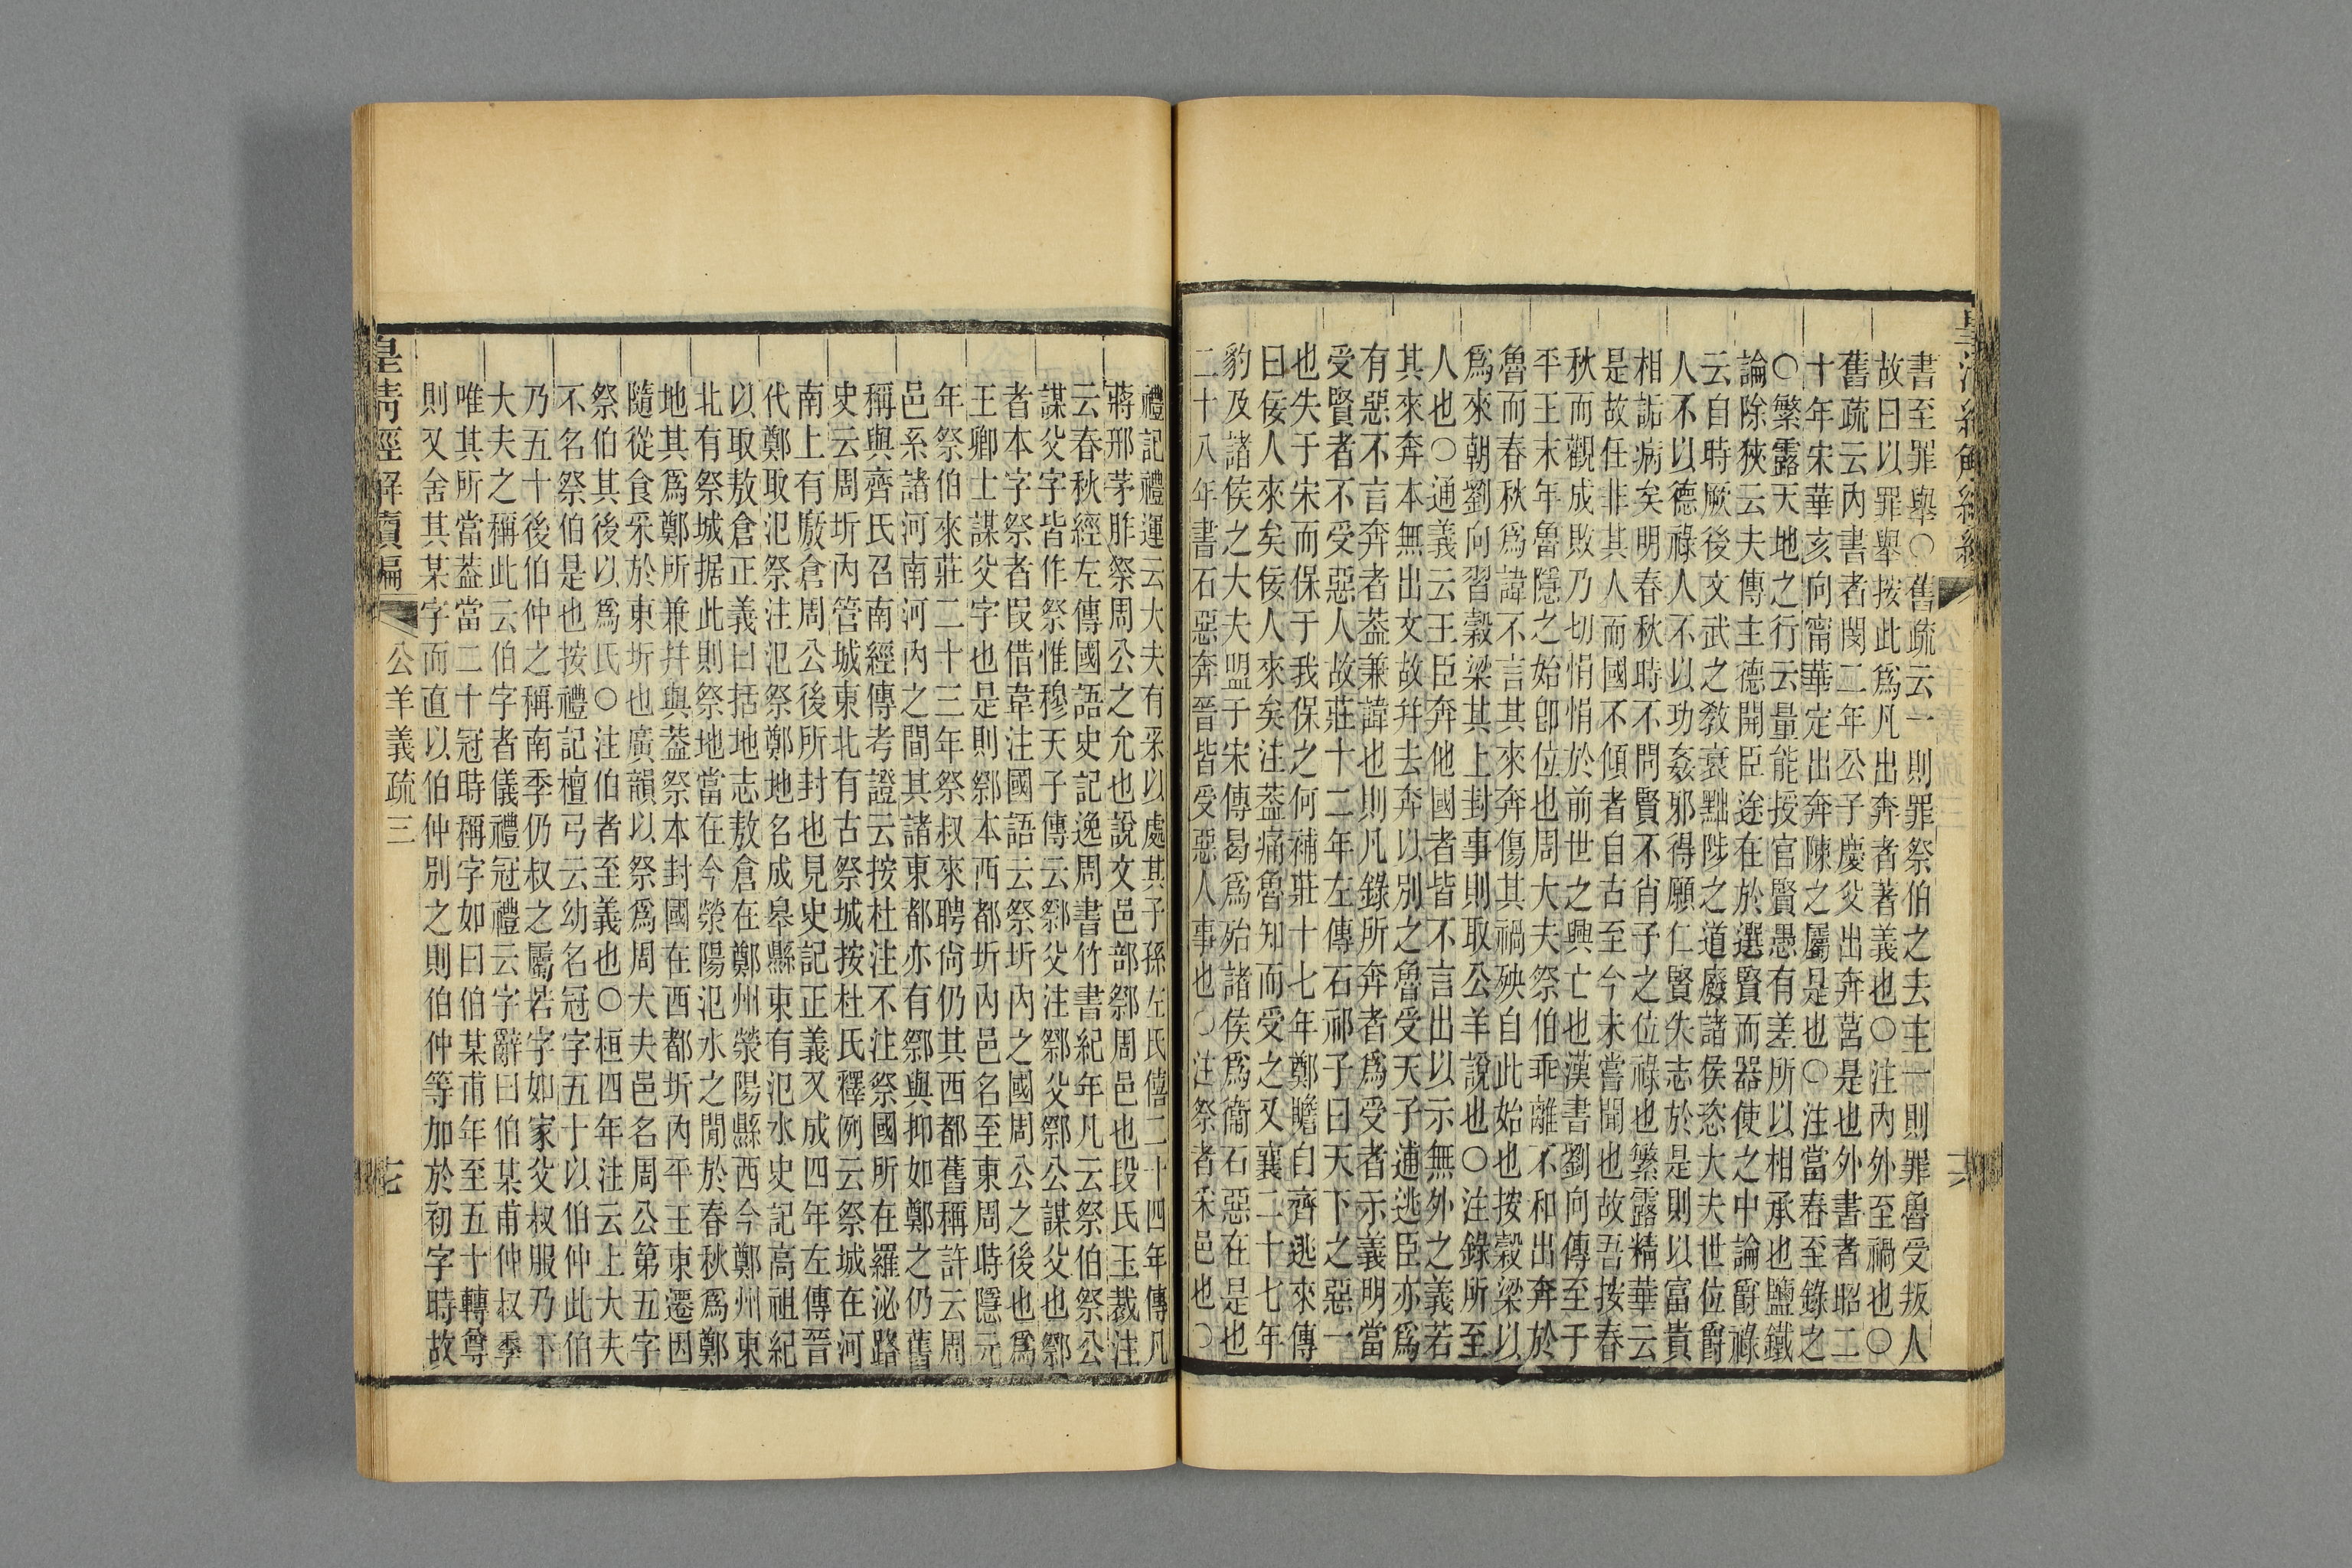 書至罪舉〇舊疏云一則罪祭伯之去主一則罪魯受叛人
故曰以罪舉按此爲凡出奔者著義也〇注内外至禍也〇
舊疏云内書者閔二年公子慶父出奔莒是也外書者昭二
十年宋華亥向甯華定出奔陳之屬是也〇注當春至錄之
〇繁露天地之行云量能授官賢愚有差所以相承也鹽鐵
論除狹云夫傳主德開臣途在於選賢而器使之中論爵祿
云自時厥後文武之敎衰黜陟之道廢諸侯恣大夫世位爵
人不以德祿人不以功姦邪得願仁賢失志於是則以富貴
相詬病矣明春秋時不問賢不肖子之位祿也繁露精華云
是故任非其人而國不傾者自古至今未嘗聞也故吾按春
秋而觀成敗乃切悁悁於前世之興亡也漢書劉向傳至于
平王末年魯隱之始卽位也周大夫祭伯乖離不和出奔於
魯而春秋爲諱不言其來奔傷其禍殃自此始也按穀梁以
爲來朝劉向習穀梁其上封事則取公羊說也〇注錄所至
人也〇通義云王臣奔他國者皆不言出以示無外之義若
其來奔本無出文故幷去奔以別之魯受天子逋逃臣亦爲
有惡不言奔者葢兼諱也則凡錄所奔者爲受者示義明當
受賢者不受惡人故莊十二年左傳石祁子曰天下之惡一
也失于宋而保于我保之何補莊十七年鄭瞻自齊逃來傳
曰佞人來矣佞人來矣注葢痛魯知而受之又襄二十七年
豹及諸侯之大夫盟于宋傳曷爲殆諸侯爲衞石惡在是也
二十八年書石惡奔晉皆受惡人事也〇注祭者采邑也〇
禮記禮運云大夫有采以處其子孫左氏僖二十四年傳凡
蔣邢茅胙祭周公之允也說文邑部鄒周邑也段氏玉裁注
云春秋經左傳國語史記逸周書竹書紀年凡云祭伯祭公
謀父字皆作祭惟穆天子傳云鄒父注鄒父鄒公謀父也鄒
者本字祭者叚借韋注國語云祭圻内之國周公之後也爲
王卿士謀父字也是則鄒本西都圻内邑名至東周時隱元
年祭伯來莊二十三年祭叔來聘尙仍其西都舊稱許云周
邑系諸河南河内之間其諸東都亦有鄒與抑如鄭之仍舊
稱與齊氏召南經傳考證云按杜注不注祭國所在羅泌路
史云周圻内管城東北有古祭城按杜氏釋例云祭城在河
南上有敖倉周公後所封也見史記正義又成四年左傳晉
代鄭取氾祭注氾祭鄭地名成皋縣東有氾水史記高祖紀
以取敖倉正義曰括地志敖倉在鄭州滎陽縣西今鄭州東
北有祭城据此則祭地當在今滎陽氾水之閒於春秋爲鄭
地其爲鄭所兼幷與葢祭本封國在西都圻内平王東遷因
隨從食采於東圻也廣韻以祭爲周大夫邑名周公第五字
祭伯其後以爲氏〇注伯者至義也〇桓四年注云上大夫
不名祭伯是也按禮記檀弓云幼名冠字五十以伯仲此伯
乃五十後伯仲之稱南季仍叔之屬若字如家父叔服乃下
大夫之稱此云伯字者儀禮冠禮云字辭曰伯某甫仲叔季
唯其所當葢當二十冠時稱字如曰伯某甫年至五十轉尊
則又舍其某字而直以伯仲別之則伯仲等加於初字時故
皇清經解續編
公羊義疏三
七